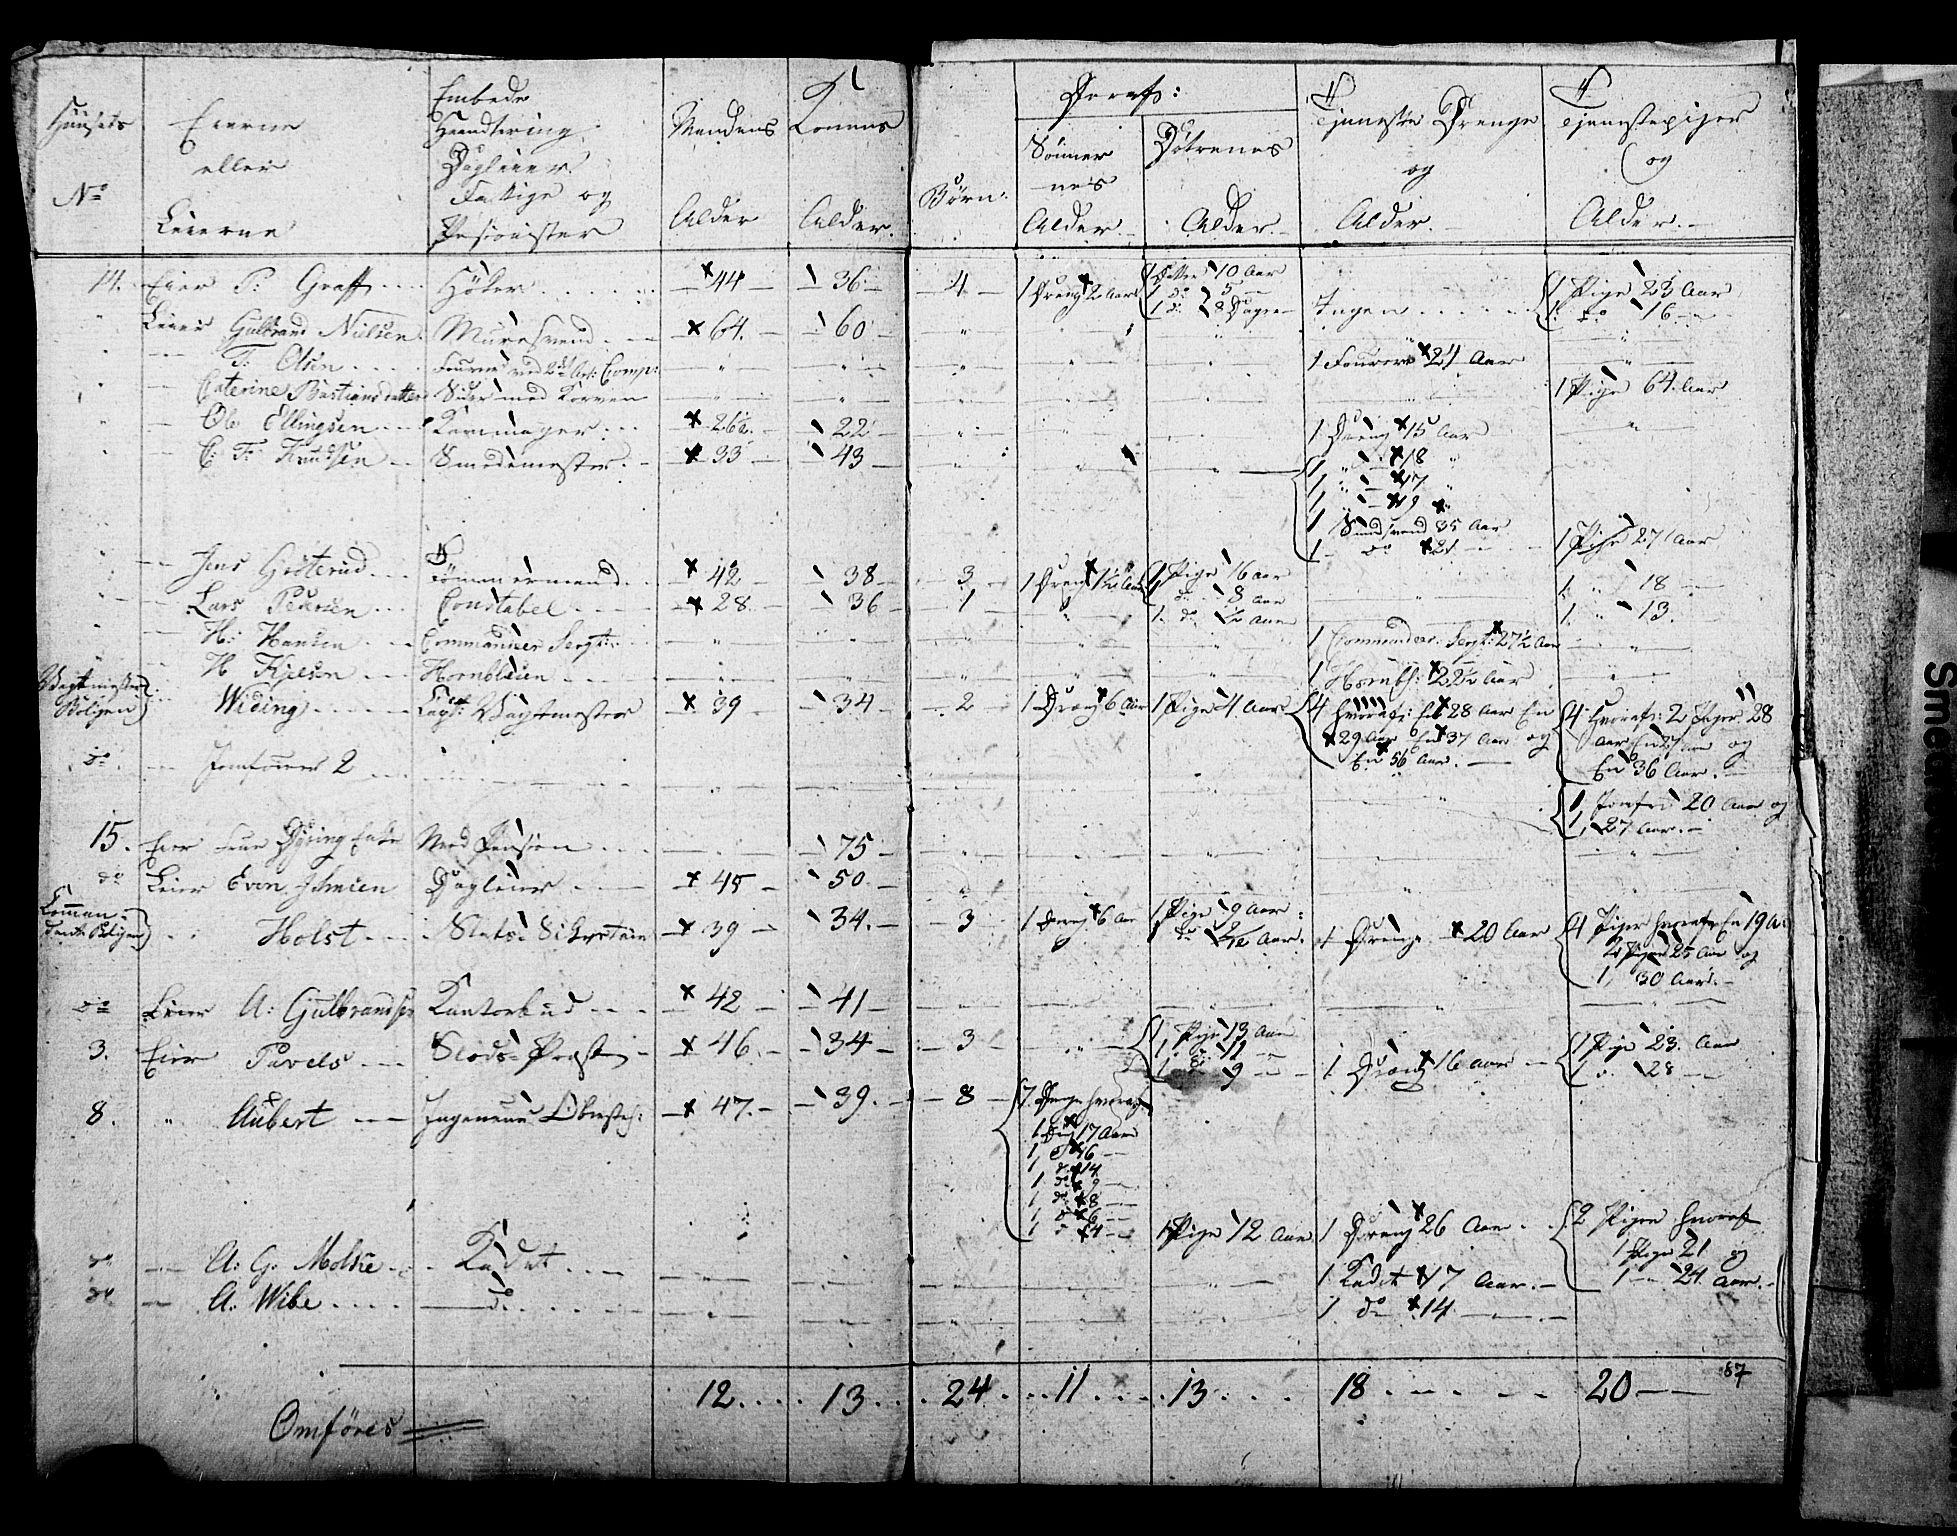 Huusets No | Eierne eller Leierne | Embede Handtering Dagleier Fattige og Pesionister | Mandens Alder | Konens Alder | Børn | Deraf: Sønnernes Alder | Døtrenes Alder | Tjeneste Drenge og Alder | Tjenestepiger og Alder
14. Eier P: Graff Höker 44 36 4 1 Dreng 2 Aar 1 Datter 10 Aar Ingen 1 Pige 23 Aar
1 do 5 1 do 16
1 d. 8 Dage
Leier Gulbrand Nielsen Muursvend 64. 60
T: Olsen 1 Fourer 24 Aar
Caterine Bastiansdatter Sidder med Kurven 1 Pige 64 Aar
Ole Ellingsen 26½ 22 1 Dreng 15 Aar
C: F: Knudsen Smedemester 33 43 1 " 18
1 " 17
1 " 19
1 Smedsvend 35 Aar
1 do 21 1 Pige 27 Aar
Jens Tömmermand 42 38 3 1 Dreng 1½ Aar 1 Pige 16 Aar 1 " 18
1 d. 8 Aar
Lars Pedersen Constabel 28 36 1 1 do ½ Aar 1 " 13
H: Hansen Commandeer Sergt: 1 Commandeer Sergt: 27½ Aar
H Kjelsen Hornblæser 1 Hornbl: 22½ Aar
Vagtmester Boligen Widing Vagtmester 39 34 2 1 Dreng 6 Aar 1 Pige 4 Aar 4 hvoraf: En 28 Aar En 4 hvoraf: 2 Piger 28
29 Aar En 37 Aar og Aar En 27 Aar og
En 56 Aar. En 36 Aar.
do Jomfruer 2 1 Jomfru 20 Aar og
1 27 Aar.
15. Eier Enke Med Pension 75
do Leier Even Dagleier 45 50
Comman- dants Boligen Holst Slots- 39 34. 3 1 Dreng 6 Aar 1 Pige 9 Aar 1 Dreng 20 Aar 4 Piger hvoraf En 19 A:
1 do ½ Aar. 2 Piger 25 Aar og
1 30 Aar.
do Leier A: Gulbrandsen Kantorbud 42 41
3. Eier Pavels Slods-Præst 46. 34 3 1 Pige 13 Aar 1 Dreng 16 Aar 1 Pige 23. Aar
1 do 11 1 d. 28
1 9
8. " Aubert Ingenieur 47. 39. 8 7 Drenge hvoraf
1 Dreng 17 Aar
1 d 16
1 d. 14
1 do 9
1 do 8
1 d 6
1 d 4 1 Pige 12 Aar 1 Dreng 26 Aar 2 Piger hvoraf
1 Pige 21 og
do A: G: Moltke Kadet 1 Kadet 17 Aar. 1 24 Aar.
do A. Wibe do 1 do 14
12. 13. 24. 11 13 18 20 87
Omføres
Sme